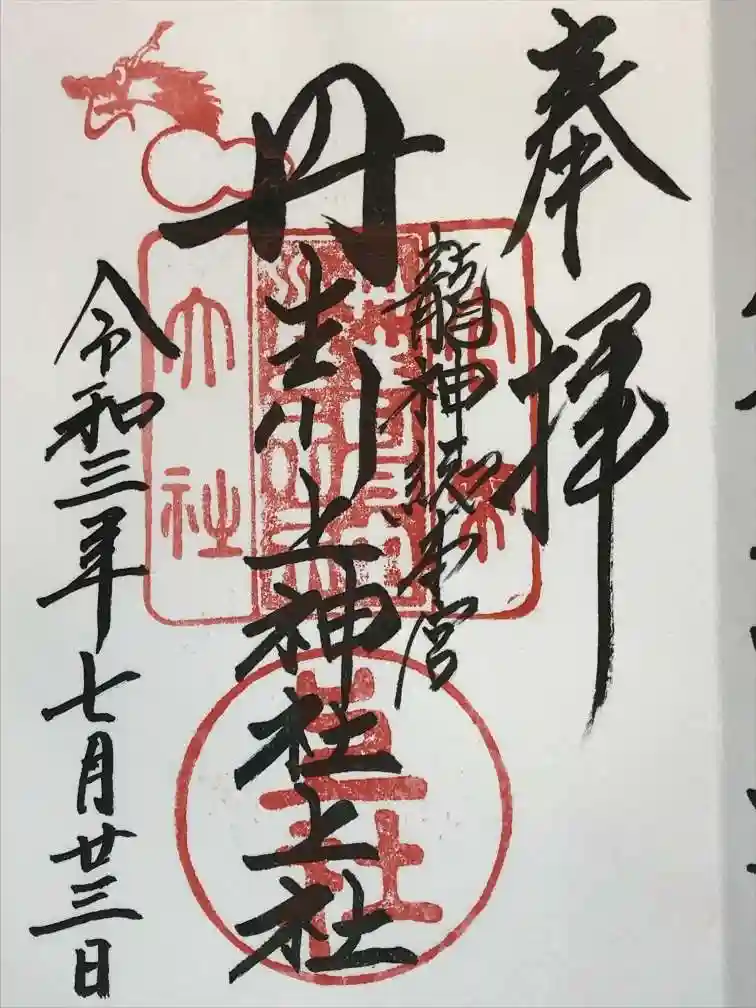 奉拝
龍神總本宮
丹生川上神社上社
令和三年七月廿三日
大社
上社